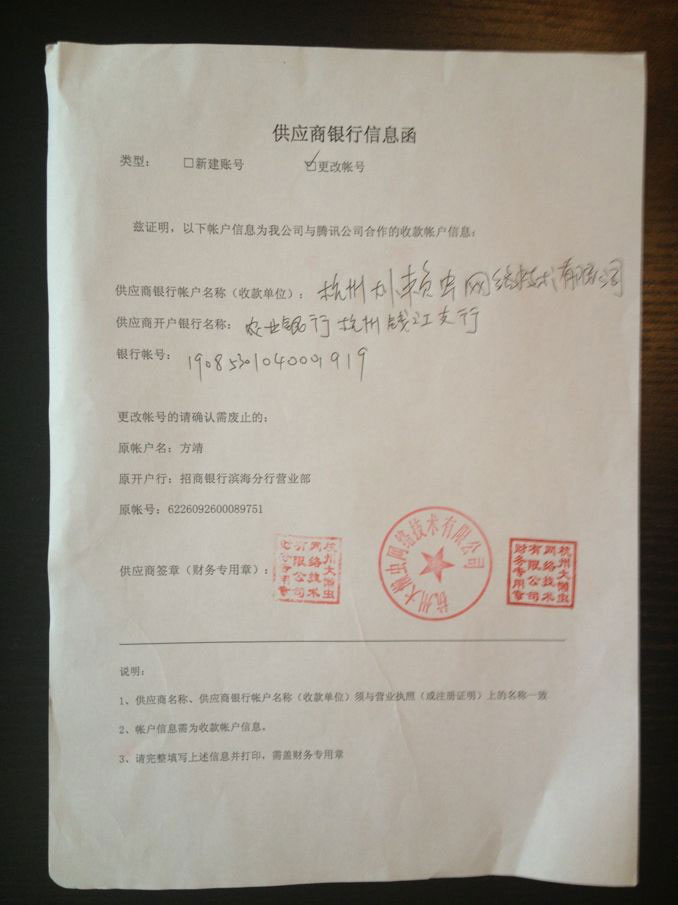 供应商银行信息函
类型： □新建账号 ☑更改帐号
兹证明，以下帐户信息为我公司与腾讯公司合作的收款帐户信息：
供应商银行帐户名称（收款单位）： 杭州大懒虫网络技术有限公司
供应商开户银行名称： 农业银行杭州钱江支行
银行帐号： 19085301040001919
更改帐号的请确认需废止的：
原帐户名：方靖
原开户行：招商银行滨海分行营业部
原帐号：6226092600089751
供应商签章（财务专用章）：
杭州大懒虫
网络技术
有限公司
财务专用章
杭州大懒虫网络技术有限公司
杭州大懒虫
网络技术
有限公司
财务专用章
说明：
1、供应商名称、供应商银行帐户名称（收款单位）须与营业执照（或注册证明）上的名称一致
2、帐户信息需为收款帐户信息。
3、请完整填写上述信息并打印，需盖财务专用章